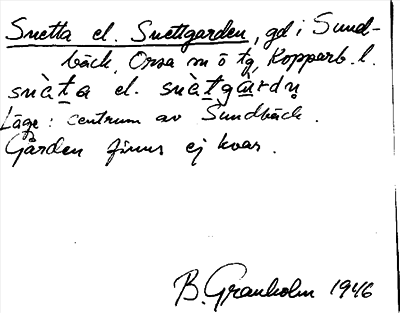 Snetta el. Snettgården, gd i Sund-
bäck, Orsa sn o tg, Kopparb. l.
snàt̲a el. snàt̲gå̲rdṇ
Läge: centrum av Sundbäck.
Gården finns ej kvar.
B. Granholm 1946